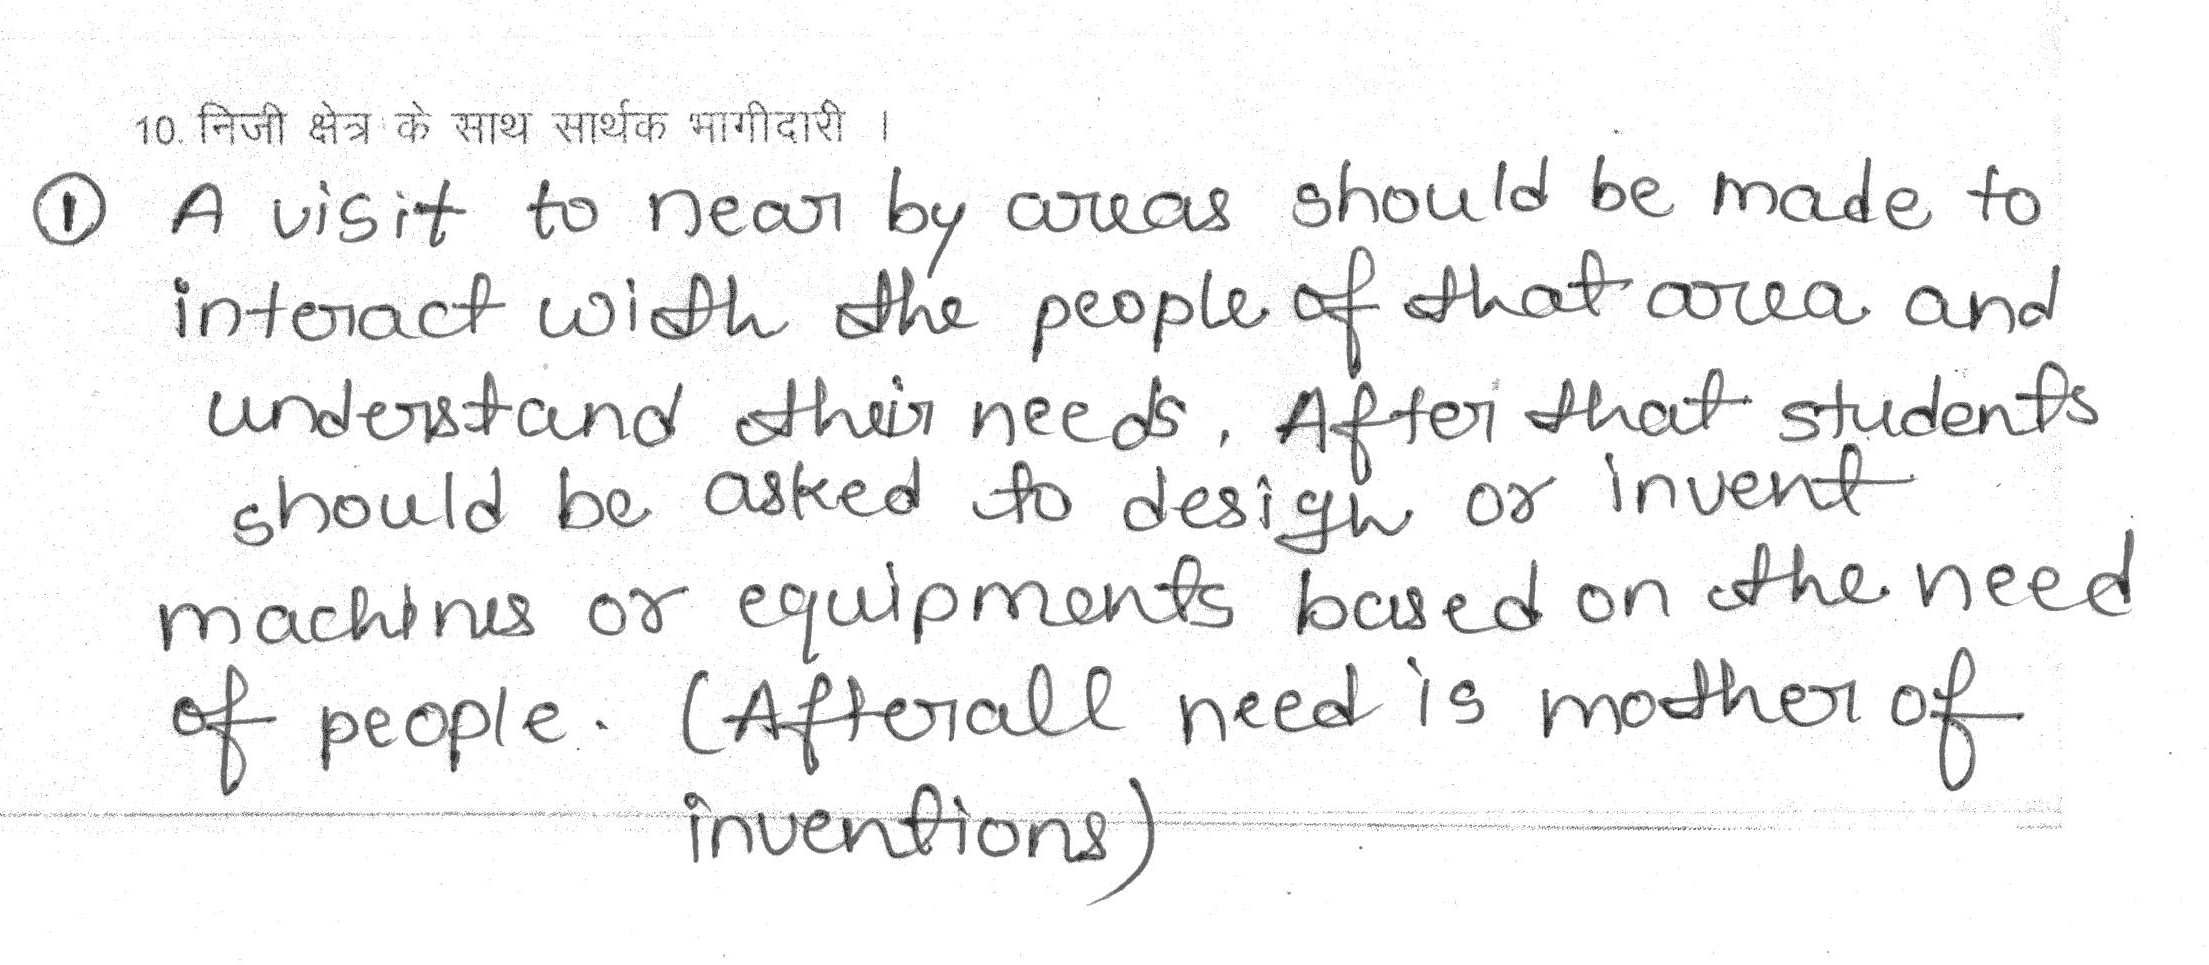 10. निजी क्षेत्र के साथ सार्थक भागीदारी ।
① A visit to near by areas should be made to
interact with the people of that area and
understand their needs. After that students
should be asked to design or invent
machines or equipments based on the need
of people. (Afterall need is mother of
inventions)